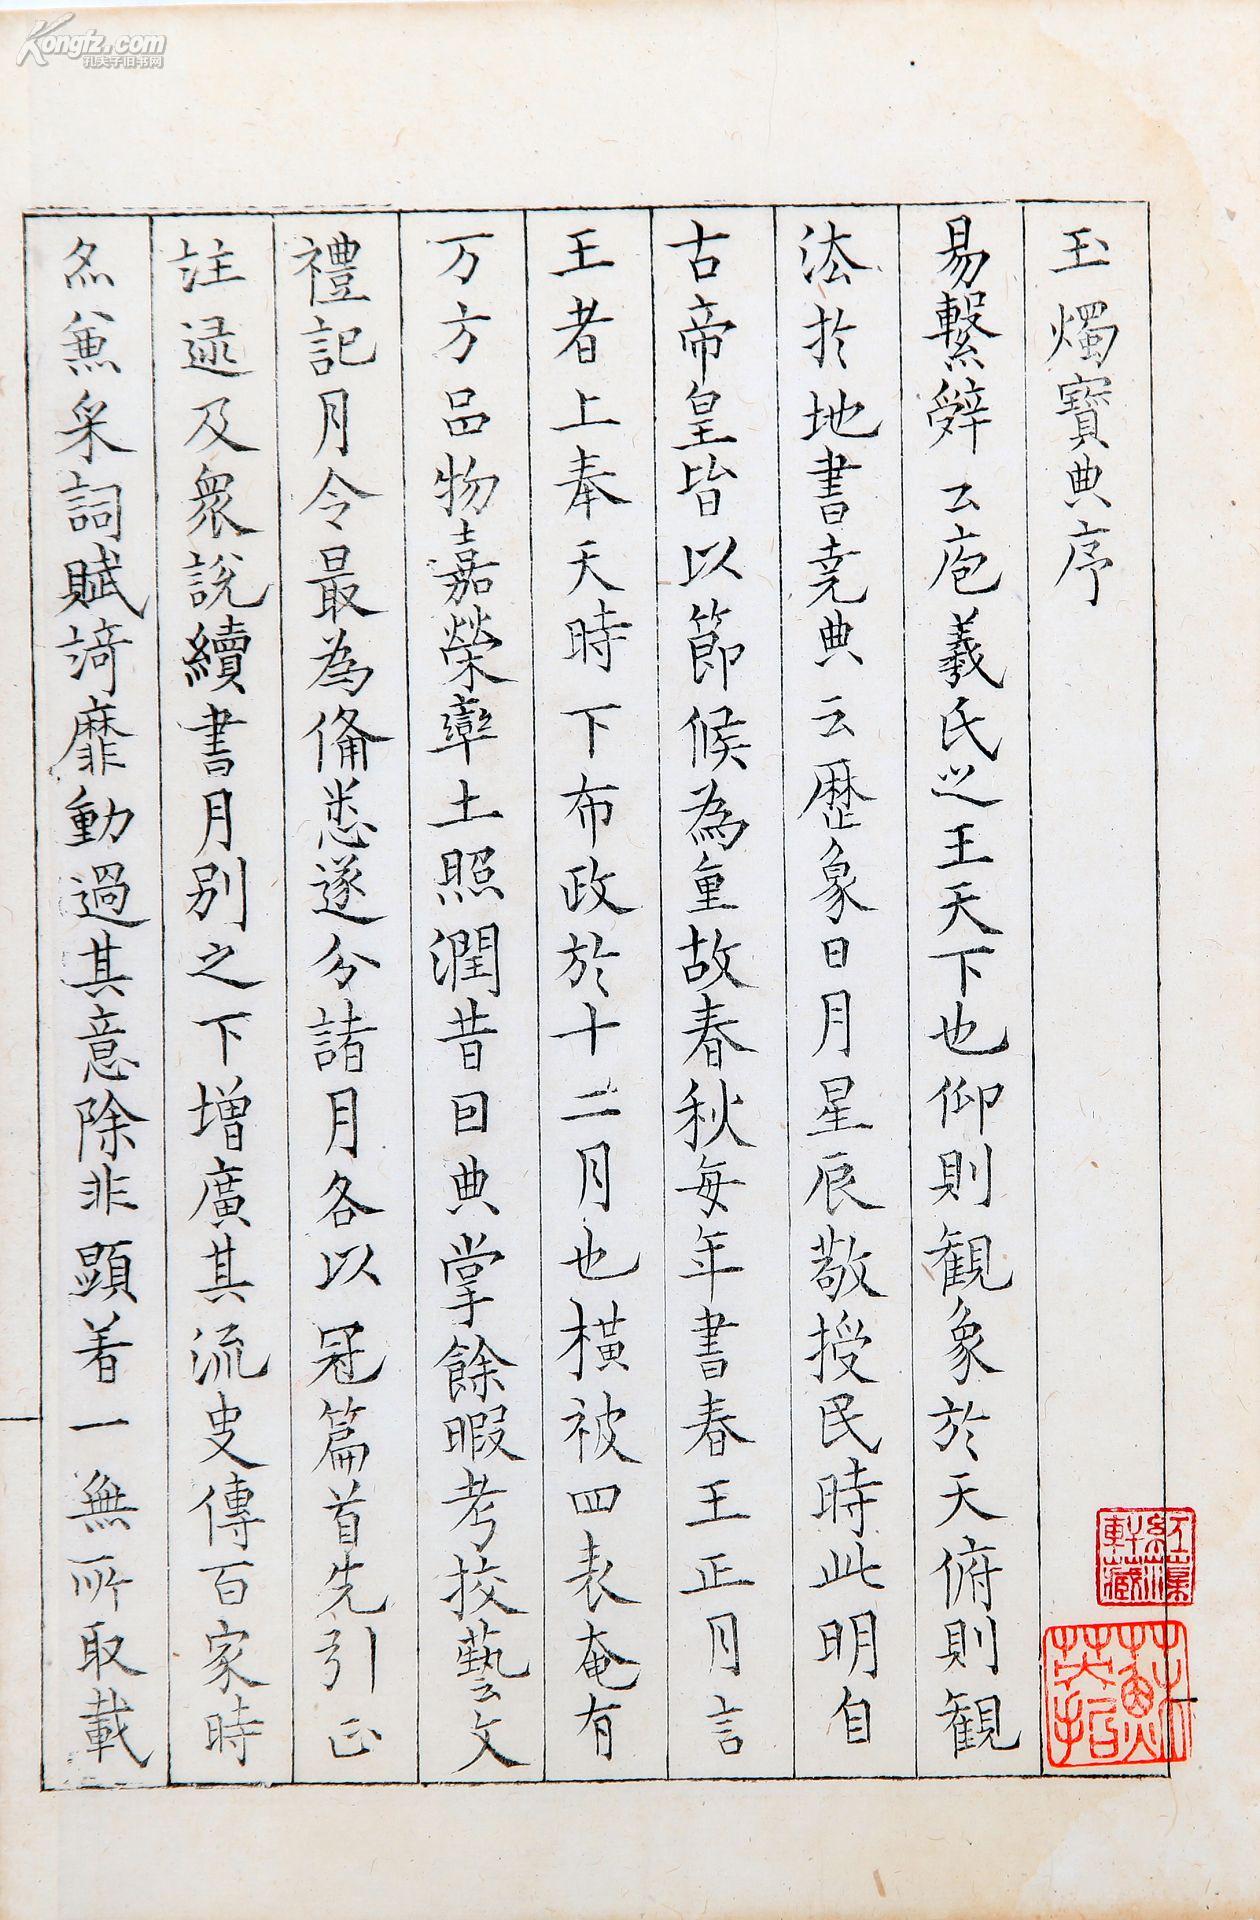 Kongfz.com
孔夫子旧书网
玉燭寶典序
易繫辭云庖羲氏之王天下也仰則観象於天俯則観
法扵地書尭典云歴象日月星辰敬授民時此明自
古帝皇皆以節候為重故春秋毎年書春王正月言
王者上奉天時下布政於十二月也橫被四表奄有
万方品物嘉榮率土照潤昔因典掌餘暇考挍藝文
禮記月令最為俻悉遂分諸月各以冠篇首先引正
註逑及衆說續書月別之下增廣其流史傳百家時
亦兼采詞賦譎靡動過其意除非顕着一無所取載
紅葉軒藏
蘇英哲